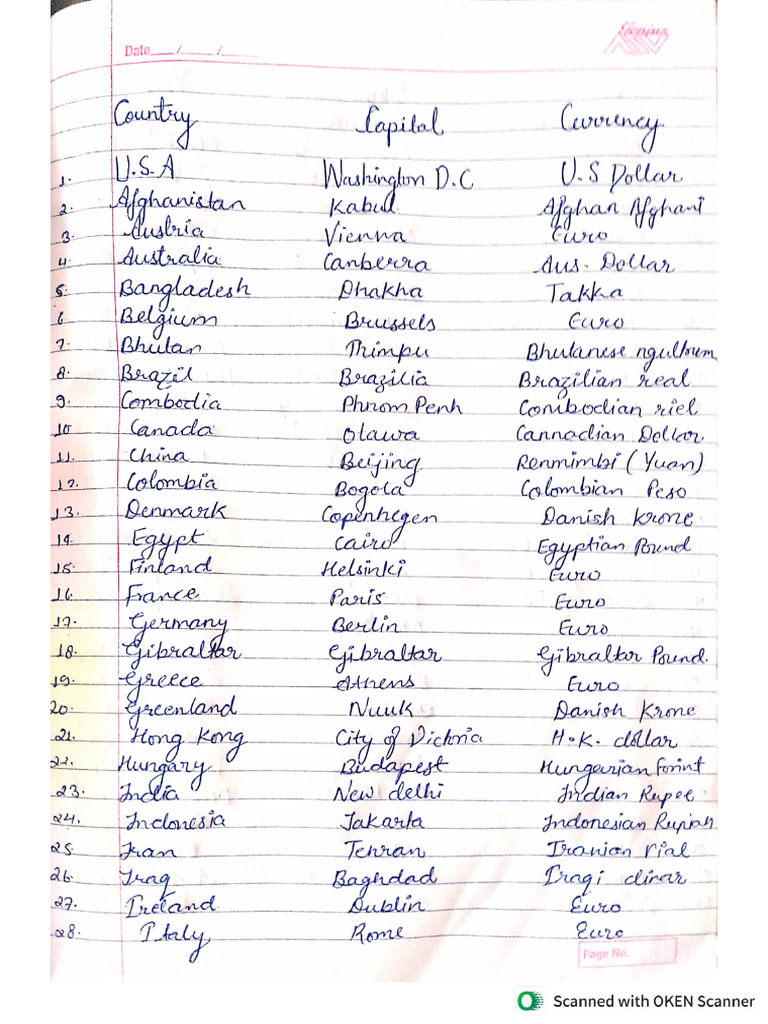 Genius
Date___/___/___
Country Capital Currency
1. U.S.A Washington D.C U.S Dollar
2. Afghanistan Kabul Afghan Afghani
3. Austria Vienna Euro
4. Australia Canberra Aus. Dollar
5. Bangladesh Dhakha Takka
6. Belgium Brussels Euro
7. Bhutan Thimpu Bhutanese ngultrum
8. Brazil Brazilia Brazilian real
9. Combodia Phnom Penh Combodian riel
10 Canada Otawa Cannadian Dollar
11. China Beijing Renmimbi (Yuan)
12. Colombia Bogota Colombian Peso
13. Denmark Copenhegen Danish Krone
14. Egypt Cairo Egyptian Pound
15. Finland Helsinki Euro
16. France Paris Euro
17. Germany Berlin Euro
18. Gibraltar Gibraltar Gibraltar Pound.
19. Greece Athens Euro
20. Greenland Nuuk Danish Krone
21. Hong Kong City of Victoria H.K. dollar
22. Hungary Budapest Hungarian Forint
23. India New delhi Indian Rupee
24. Indonesia Jakarta Indonesian Rupiah
25. Iran Tehran Iranian rial
26. Iraq Baghdad Iraqi dinar
27. Ireland Dublin Euro
28. Italy Rome Euro
Page No.
Scanned with OKEN Scanner